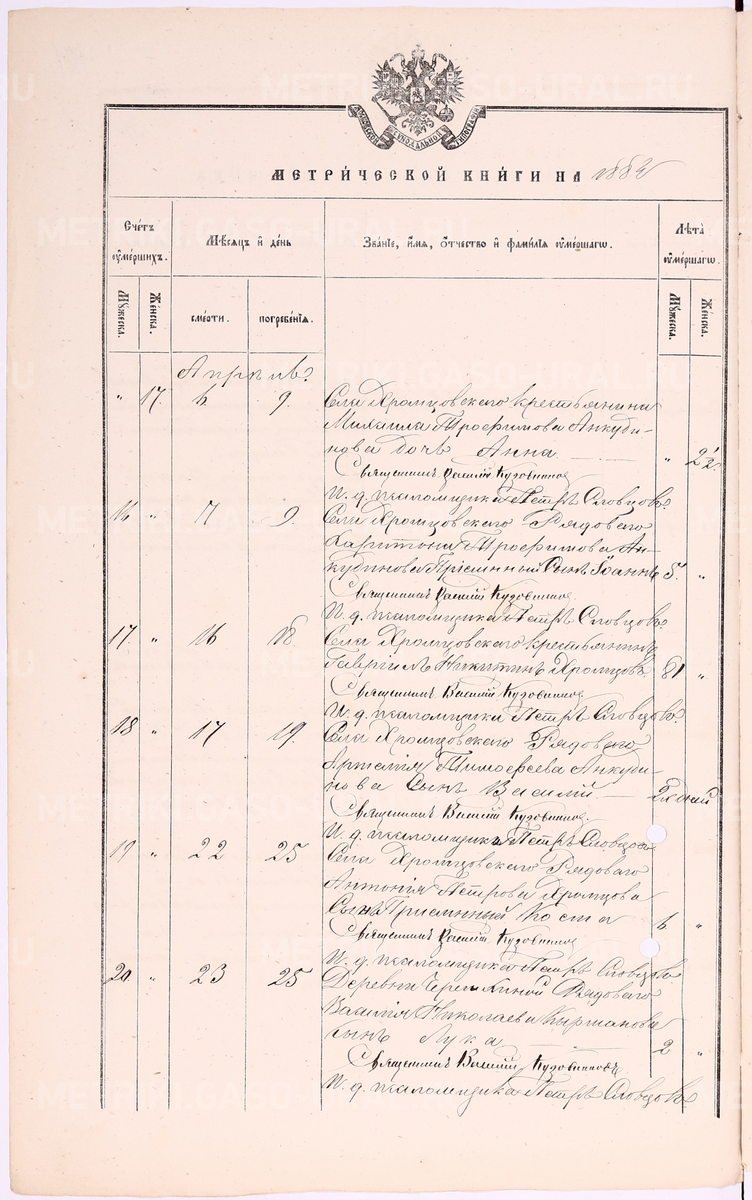 МОСКОВСКОЙ СѴНОДАЛЬНОЙ ТИПОГРАФІИ
МЕТРИ́ЧЕСКОЙ КНИ́ГИ НА 1882
Сче́тъ оуме́ршихъ.
Мѣ́сяцъ и҆ де́нь
Зва́нїе, и҆́мя, ѻ҆́тчество и҆ фами́лїя оуме́ршагѡ.
Лѣ́та оуме́ршагѡ.
Му́жеска.
Же́нска.
сме́рти.
погребе́нїя.
Му́жеска.
Же́нска.
Апрѣль
„ 17. 6 9. Села Хромцовскаго крестьянина
Михаила Трофимова Анкуди-
нова дочь Анна „ 2½.
Священникъ Василій Кузовниковъ
И. д. псаломщика Петръ Словцовъ.
16 „ 7 9. Села Хромцовскаго Рядоваго
Харитона Трофимова Ан-
кудинова Пріемный Сынъ Іоаннъ 5. „
Священникъ Василій Кузовниковъ
И. д. псаломщика Петръ Словцовъ.
17. „ 16 18 Села Хромцовскаго крестьянинъ
Гавріилъ Никитинъ Хромцовъ 81 „
Священникъ Василій Кузовниковъ
И. д. псаломщика Петръ Словцовъ.
18 „ 17 19. Села Хромцовскаго Рядоваго
Артемія Тимофеева Анкуди-
нова Сынъ Василій дней
Священникъ Василій Кузовниковъ.
И. д. псаломщика Петръ Словцовъ
19 „ 22 25 Села Хромцовскаго Рядоваго
Антонія Петрова Хромцова
Сынъ Пріемный Косма 6 „
Священникъ Василій Кузовниковъ
И. д. псаломщика Петръ Словцовъ
20. „ 23 25 Деревни Рядоваго
Василія Николаева
сынъ Лука 2 „
Священникъ Василій Кузовниковъ
И. д. псаломщика Петръ Словцовъ